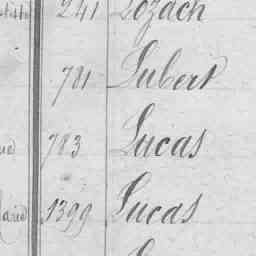 241 Lozach
781 Lubert
783 Lucas
1399 Lucas